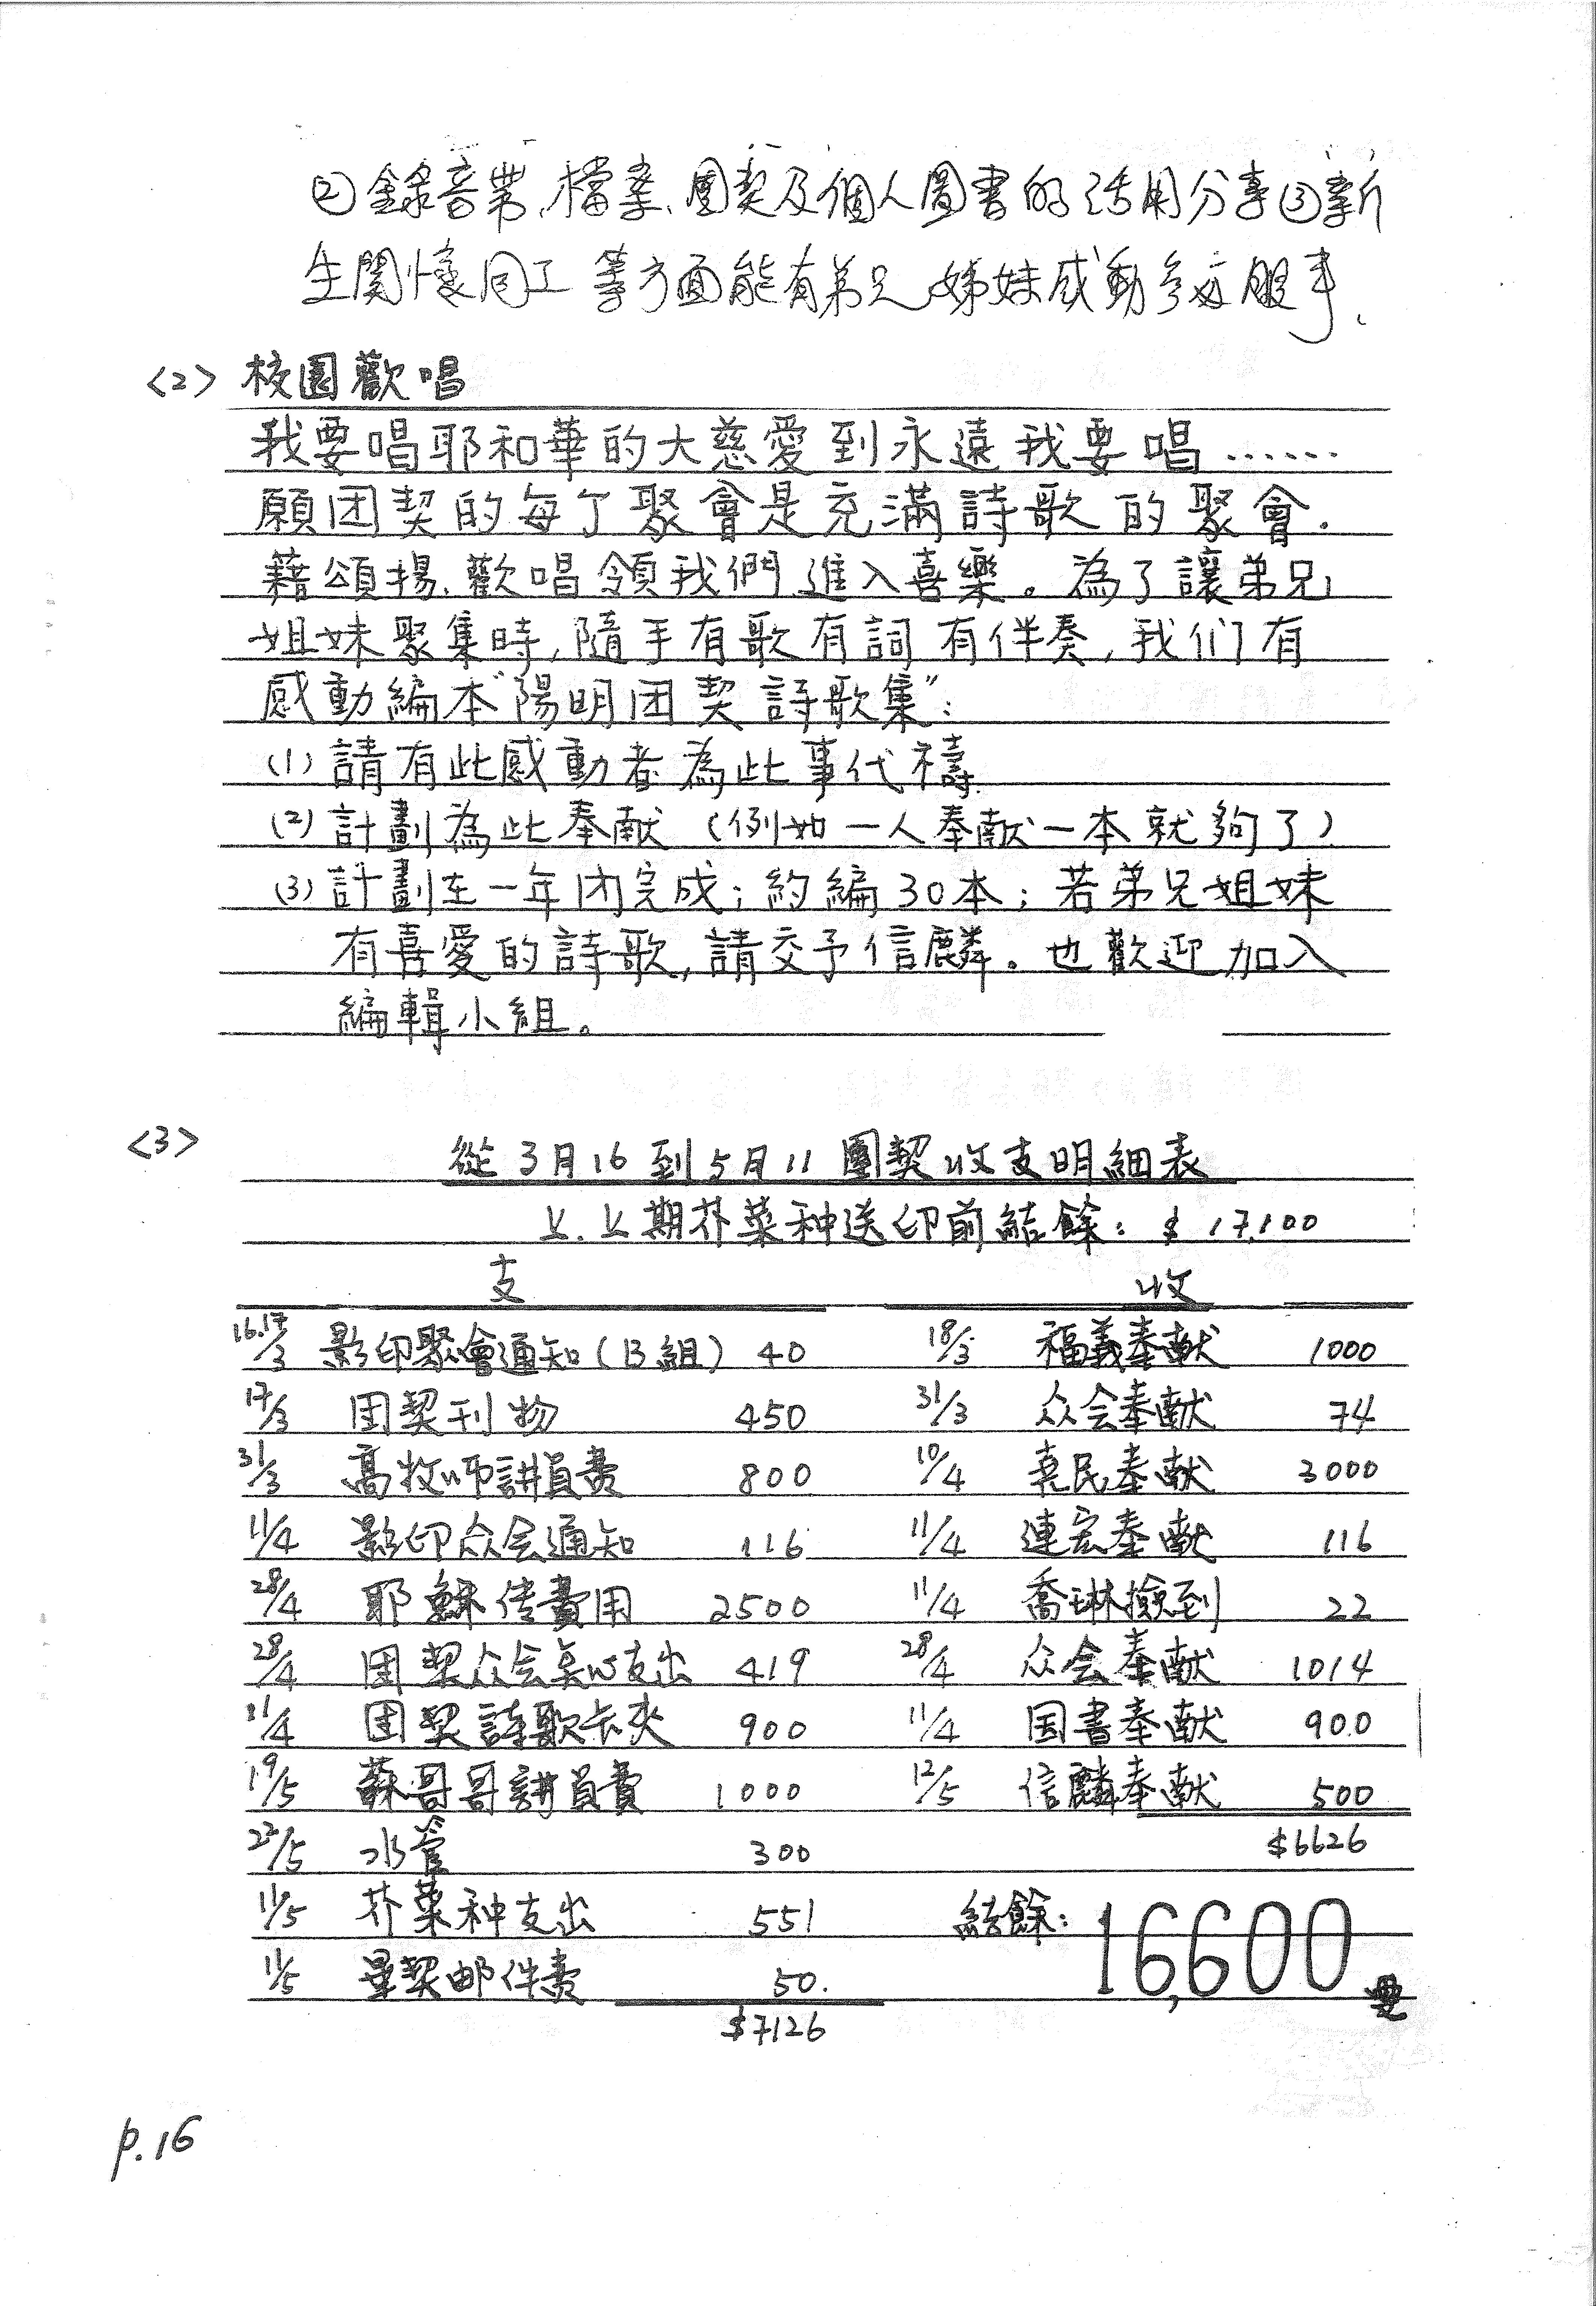 ②錄音帶、檔案、團契及個人圖書的活用分享③新
生関懷同工等方面能有弟兄姊妹感動參与服事、
<2> 校園歡唱
我要唱耶和華的大慈愛到永遠我要唱……
願团契的每个聚會是充滿詩歌的聚會.
藉頌揚、歡唱領我們進入喜樂。為了讓弟兄
姐妹聚集時,隨手有歌有詞有伴奏,我们有
感動編本"陽明团契詩歌集":
(1) 請有此感動者為此事代禱.
(2) 計劃為此奉献 (例如一人奉献一本就夠了)
(3) 計劃在一年内完成; 約編30本; 若弟兄姐妹
有喜愛的詩歌,請交予信麟。也歡迎加入
編輯小組。
<3> 從3月16到5月11團契收支明細表
上.上期芥菜种送印前結餘: $ 17,100
支 收
16.17/3 影印聚會通知(B組) 40 18/3 福義奉献 1000
17/3 团契刊物 450 31/3 众会奉献 74
31/3 高牧师講員費 800 10/4 惠民奉献 3000
11/4 影印众会通知 116 11/4 連宏奉献 116
28/4 耶穌传費用 2500 11/4 喬琳撿到 22
28/4 团契众会点心支出 419 28/4 众会奉献 1014
11/4 团契詩歌卡夾 900 11/4 国書奉献 900
19/5 蘇哥哥講員費 1000 12/5 信麟奉献 500
22/5 水管 300 $6626
11/5 芥菜种支出 551 結餘: 16,600
11/5 契邮件費 50.
$7126
p.16